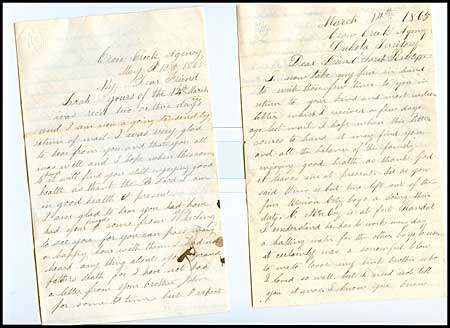 Crow Creek Agency,
May 1865
My Dear Friend
Sarah yours of the 14th March
was received this day
and I am now a going to send by
return of mail. I was very glad
to hear from you and that you all
was well and I hope when this
will find you still enjoying good
health as thank the Lord I am
in good health at present.
I am glad to hear you had have
had your friends come from Wheeling
to see you, for you can pass many
a happy hour with them. I had not
heard any thing about your Grand
fathers death for I have not had
a letter from your brother John
for some time but I expect
March 14th 1865
Crow Creek Agency
Dakota Territory
Dear Friend Sarah
I now take my pen in hand
to write those few lines to you in
return to your kind and most welcome
letter which I received a few days
ago last mail. I hope when this letter
comes to hand it may find you
and all the balance of the family
enjoying good health as thank God
it leaves me at present. So as you
said there is but two left out of the
four Union City boys a doing their
duty. is at fort Randal
I understand he has to work every day
a halling water for the other boys to use
it certainly was a sorrowful blow
to me to loose my kind brother who
I loved so well but I need not tell
you it was. I know you know